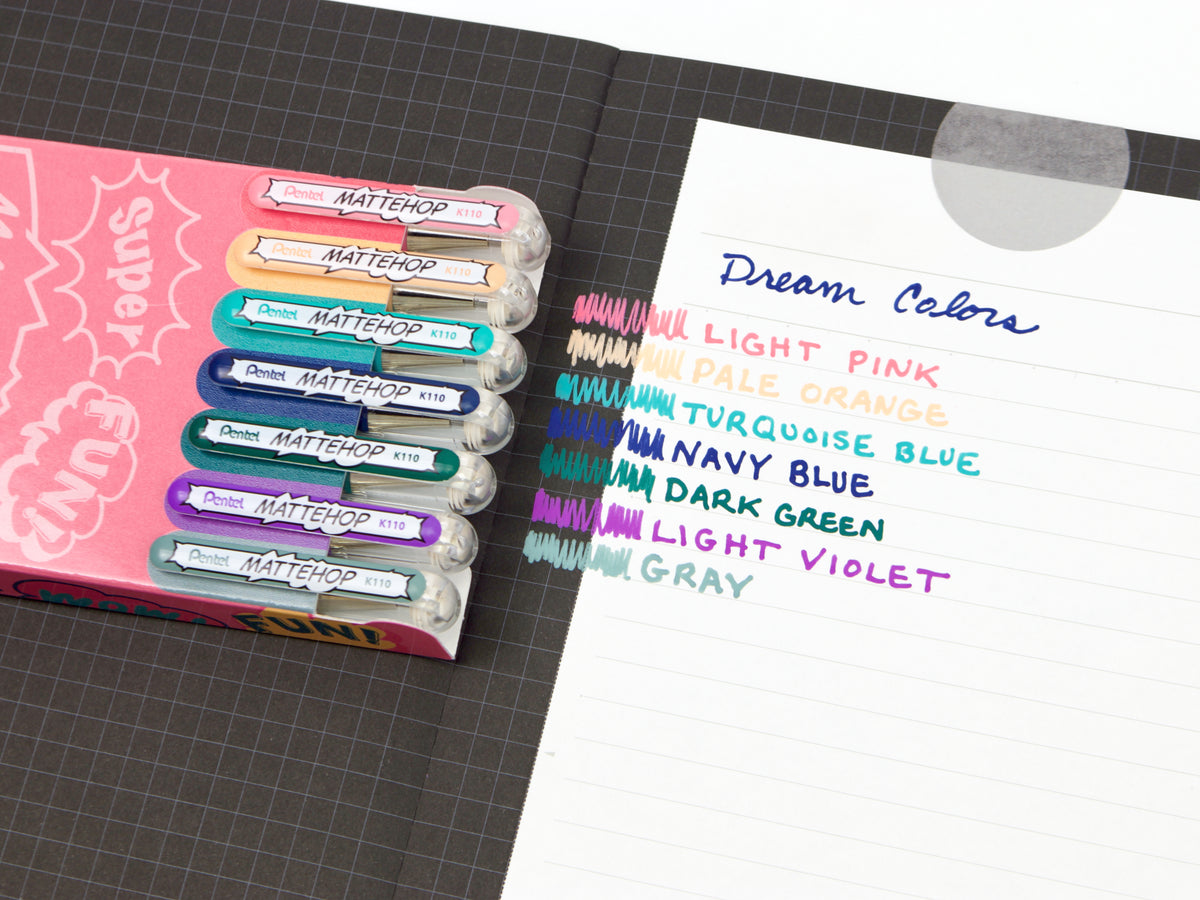 Super
FUN!
Pentel MATTEHOP K110
Pentel MATTEHOP K110
Pentel MATTEHOP K110
Pentel MATTEHOP K110
Pentel MATTEHOP K110
Pentel MATTEHOP K110
Pentel MATTEHOP K110
WOW!
FUN!
Dream Colors
LIGHT PINK
PALE ORANGE
TURQUOISE BLUE
NAVY BLUE
DARK GREEN
LIGHT VIOLET
GRAY